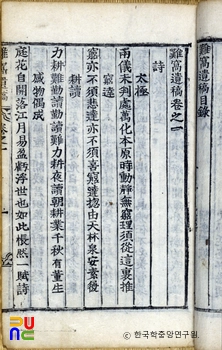 難窩遺稿目錄
難窩遺稿卷之一
詩
太極
兩儀未判處萬化本原時動靜無窮理須從這裏推
窮達
窮亦不須悲達亦不須喜窮達摠由天林泉安素履
耕讀
力耕難勤讀勤讀難力耕夜讀朝耕業千秋有董生
感物偶成
庭花自開落江月易盈虧浮世也如此悵然一賦詩
難窩遺稿
卷之一
© 한국학중앙연구원